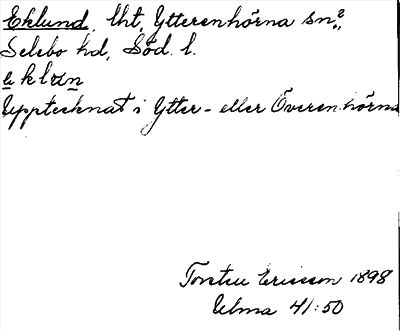 Eklund, lht, Ytterenhörna sn,?
Selebo hd, Söd. l.
eklun
Upptecknat i Ytter- eller Överenhörna
Torsten Ericsson 1898
Ulma 41:50